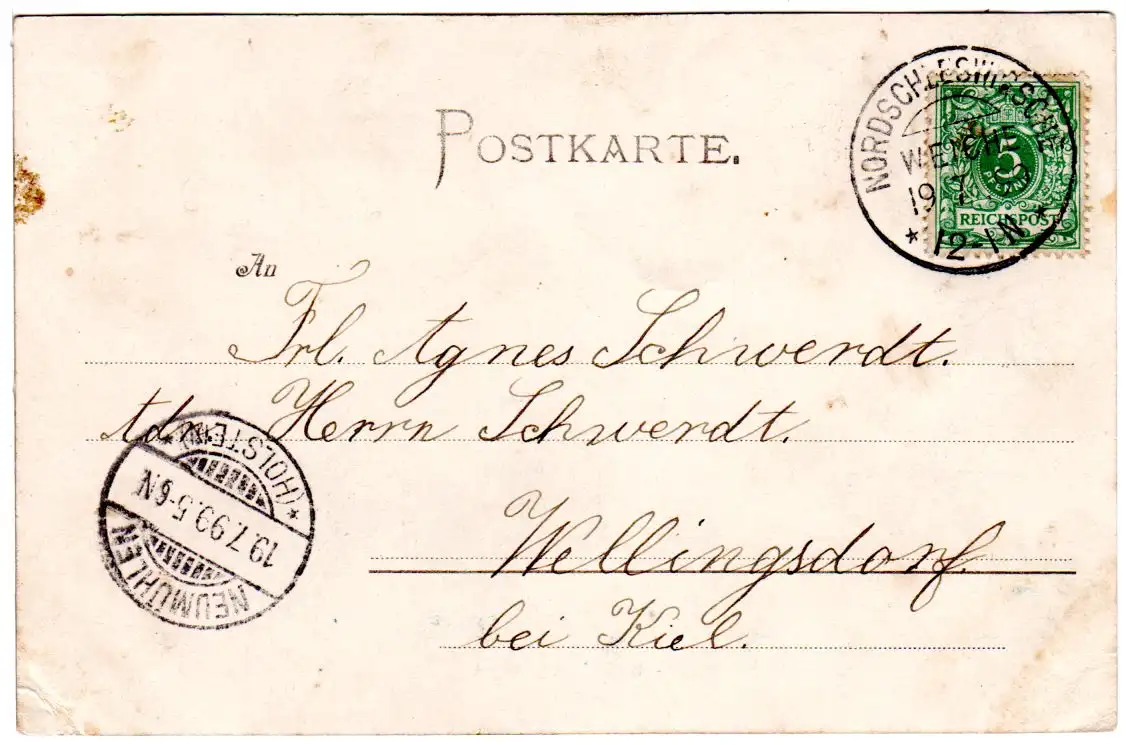 POSTKARTE.
NORDSCHLESWIGSCHE
WEICHE
19 7
* 12-1N *
5
PFENNIG
REICHSPOST
An
Frl. Agnes Schwerdt.
Herrn Schwerdt.
Wellingsdorf.
bei Kiel.
NEUMÜHLEN
19.7.99.5-6N.
*(HOLSTEIN)*